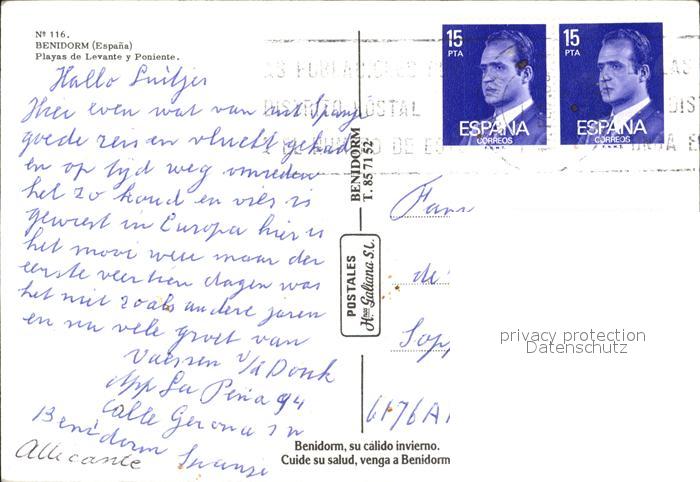 Nº 116.
BENIDORM (España)
Playas de Levante y Poniente.
Hallo Luitjes
Hier even wat van uit Spanje
goede reis en vlucht gehad
en op tijd weg omreden
het zo koud en vies is
geweest in Europa hier is
het mooi weer maar der
eerste veertien dagen was
het niet zoals andere jaren
en nu vele groet van
Vaessen v/d Donk
App La Peña 94
Calle Gerona
Benidorm Spanje
Allecante
BENIDORM
T. 85 71 52
POSTALES
Hnos Galiana S.L.
15
PTA
ESPAÑA
CORREOS
15
PTA
ESPAÑA
CORREOS
DISTRITO POSTAL
Fam
de
Sop
6176A
privacy protection
Datenschutz
Benidorm, su cálido invierno.
Cuide su salud, venga a Benidorm